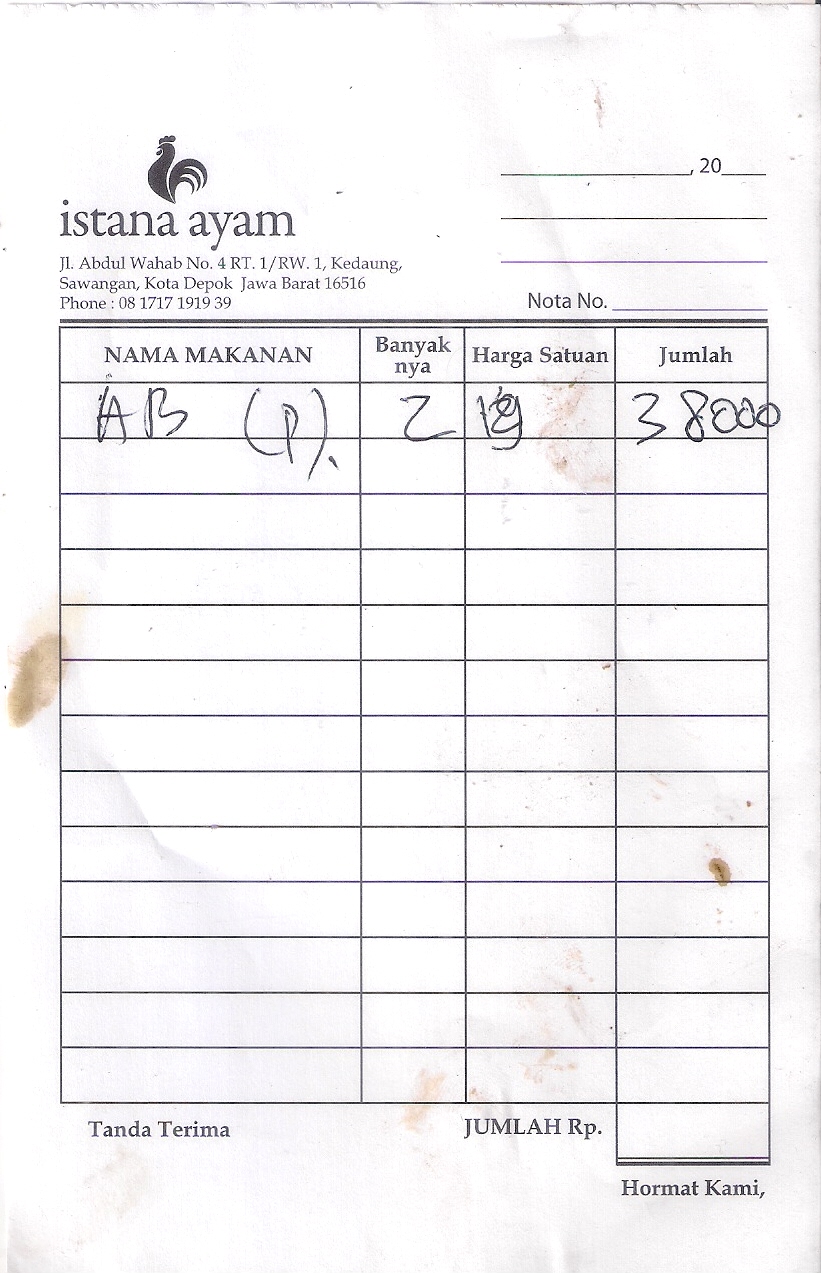 , 20
istana ayam
Jl. Abdul Wahab No. 4 RT. 1/RW. 1, Kedaung,
Sawangan, Kota Depok Jawa Barat 16516
Phone : 08 1717 1919 39
Nota No.
NAMA MAKANAN Banyak nya Harga Satuan Jumlah
AB (P). 2 19 38000
Tanda Terima JUMLAH Rp.
Hormat Kami,